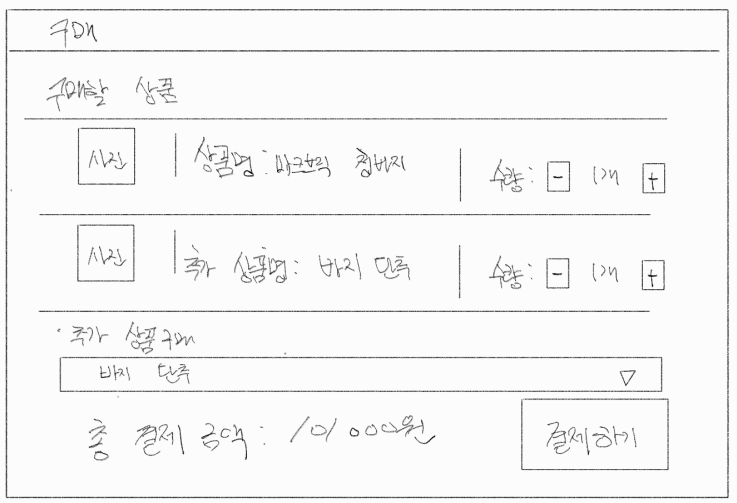 구매
구매할 상품
사진 상품명: 마크릭 청바지 수량: - 1개 +
사진 추가 상품명: 바지 단추 수량: - 1개 +
· 추가 상품 구매
바지 단추 ▽
총 결제 금액: 101000원 결제하기